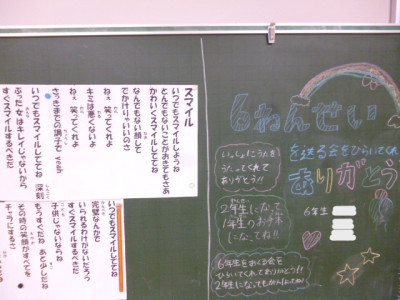 スマイル
いつでもスマイルしようね
とんでもないことがおきてもさあ
かわいくスマイルしててね
なんでもない顔して
でかけりゃいいのさ
ねぇ 笑ってくれよ
キミは悪くないよ
ねぇ 笑ってくれよ
さっきまでの調子で yeah
いつでもスマイルしててね
深刻
ぶった女はキレイじゃないから
すぐスマイルするべきだ
いつでもスマイルしててね
完璧なんかで
いられるわけがないだろう
すぐスマイルするべきだ
子供じゃないならね
もうすぐだね
その時の笑顔がすべてを
チャラにするさ
6ねんせい
を送る会をひらいてくれ
ありがとう
6年生
いっしょにうたを
うたってくれて
ありがとう!!
2年生になって
1年生のお手本
になってね!!
6年生をおくる会を
ひらいてくれてありがとう!!
2年生になってもがんばってね!